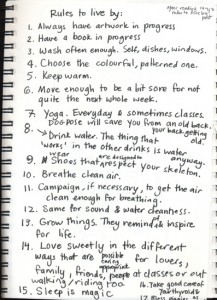 Rules to live by:
1. Always have artwork in progress
2. Have a book in progress
3. Wash often enough. Self, dishes, windows.
4. Choose the colourful, patterned one.
5. Keep warm.
6. Move enough to be a bit sore for not
quite the next whole week.
7. Yoga. Everyday & sometimes classes.
will save you from an old back.
8. Drink water. The thing that
'works' in the other drinks is water
your back getting old
anyway.
9. wear Shoes that are designed to respect your skeleton.
10. Breathe clean air.
11. Campaign, if necessary, to get the air
clean enough for breathing.
12. Same for sound & water cleanness.
13. Grow things. They remind & inspire
for life.
14. Love sweetly in the different
ways that are possible for lovers,
caring appropriate
family, friends, people at classes or out
walking/riding too
15. Sleep is magic
16. Take good care of